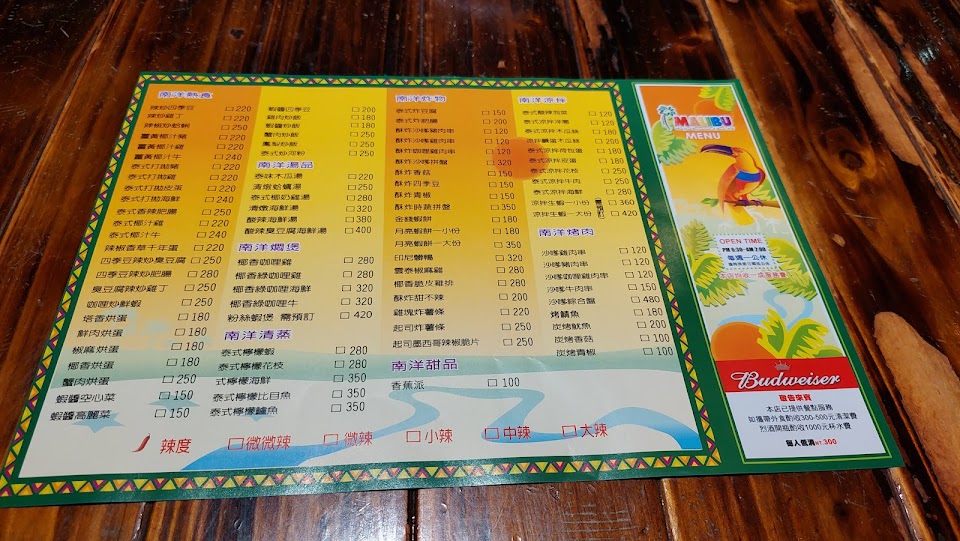 南洋熱食
辣炒四季豆 □220
辣炒雞丁 □220
辣椒炒蛤蜊 □250
薑黃椰汁豬 □220
薑黃椰汁雞 □220
薑黃椰汁牛 □240
泰式打拋豬 □220
泰式打拋雞 □220
泰式打拋皮蛋 □220
泰式打拋海鮮 □240
泰式香辣肥腸 □250
泰式椰汁雞 □220
泰式椰汁牛 □240
辣椒香草干年蛋 □220
四季豆辣炒臭豆腐 □250
四季豆辣炒肥腸 □250
臭豆腐辣炒雞丁 □250
咖哩炒鮮蝦 □250
塔香烘蛋 □180
鮮肉烘蛋 □180
椒麻烘蛋 □180
椰香烘蛋 □180
蟹肉烘蛋 □250
蝦醬空心菜 □150
蝦醬高麗菜 □150
蝦醬四季豆 □200
雞肉炒飯 □180
蝦醬炒飯 □180
蟹肉炒飯 □200
鳳梨炒飯 □200
泰式炒河粉 □200
南洋湯品
泰味木瓜湯 □220
清燉蛤蠣湯 □250
泰式椰奶雞湯 □280
清燉海鮮湯 □320
酸辣海鮮湯 □380
酸辣臭豆腐海鮮湯 □400
南洋燜煲
椰香咖哩雞 □280
椰香綠咖哩雞 □280
椰香綠咖哩海鮮 □320
椰香綠咖哩牛 □320
粉絲蝦煲 需預訂 □420
南洋清蒸
泰式檸檬蝦 □280
泰式檸檬花枝 □280
式檸檬海鮮 □350
泰式檸檬比目魚 □350
泰式檸檬鱸魚 □350
南洋炸物
泰式炸豆腐 □150
泰式炸肥腸 □200
酥炸沙嗲豬肉串 □150
酥炸沙嗲雞肉串 □150
酥炸咖哩雞肉串 □150
酥炸沙嗲拼盤 □320
酥炸香菇 □150
酥炸四季豆 □150
酥炸青椒 □150
酥炸時蔬拼盤 □250
金錢蝦餅 □180
月亮蝦餅一小份 □180
月亮蝦餅一大份 □350
印尼鹽鴨 □320
雲泰椒麻雞 □250
椰香脆皮雞排 □250
酥炸甜不辣 □200
雞塊炸薯條 □250
起司炸薯條 □250
起司墨西哥辣椒脆片 □250
南洋甜品
香蕉派 □100
南洋涼拌
泰式酸辣泡菜 □120
泰式涼拌洋蔥 □120
泰式涼拌木瓜絲 □180
涼拌鹹蛋木瓜絲 □200
泰式涼拌荷包蛋 □180
泰式涼拌皮蛋 □180
泰式涼拌花枝 □250
泰式涼拌牛肉 □250
泰式涼拌海鮮 □280
涼拌生蝦一小份 需預訂 □360
涼拌生蝦一大份 □420
南洋烤肉
沙嗲雞肉串 □120
沙嗲豬肉串 □120
沙嗲咖哩雞肉串 □120
沙嗲牛肉串 □150
沙嗲綜合盤 □480
烤鯖魚 □180
炭烤魷魚 □200
炭烤香菇 □150
炭烤青椒 □100
辣度 □微微辣 □微辣 □小辣 □中辣 □大辣
MALIBU
MENU
OPEN TIME
PM 5:30-AM 2:00
每週一公休
本店酌收一成服務費
Budweiser
敬告來賓
本店已提供餐點服務
如攜帶外食酌收300-500元清潔費
烈酒開瓶酌收1000元杯水費
每人低消NT.300